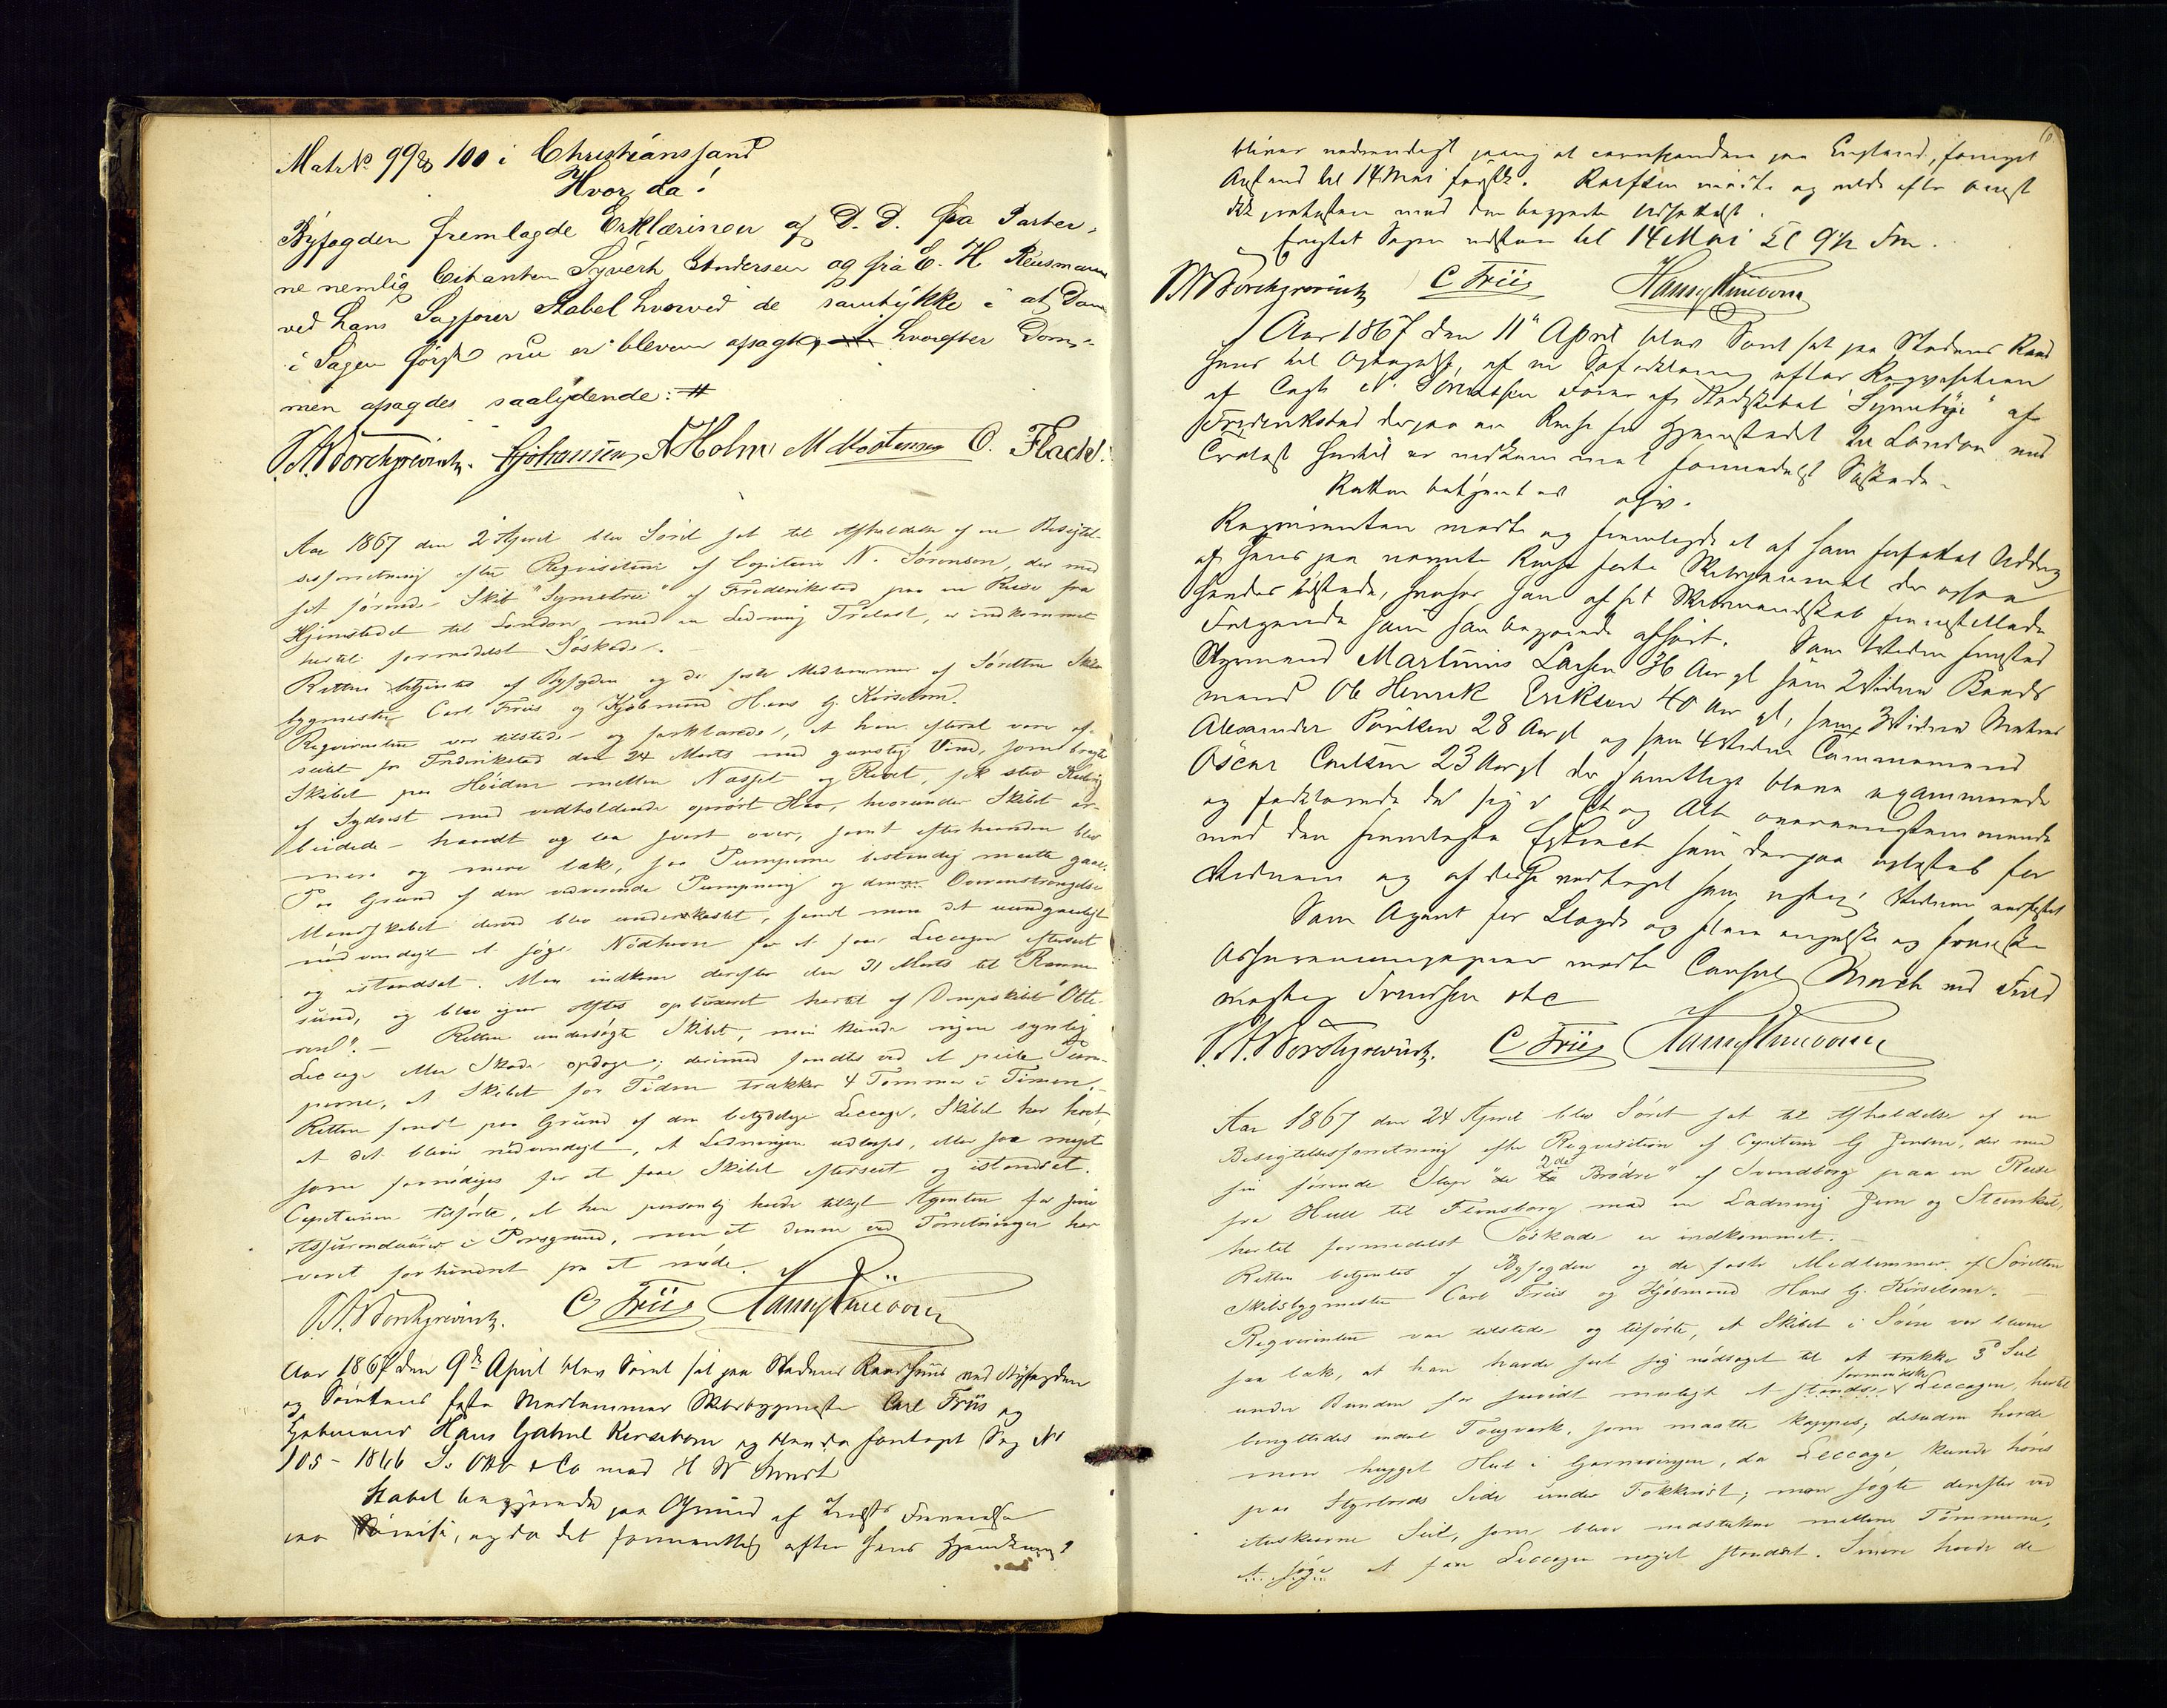 Matr No 99 & 100 i Christianssand
Hvorda!
Byfogden fremlagde Erklæringer af D. D. fra Parter,
ne nemlig Citanten Syvert Andersen og fra E. H. Reusmann
ved hans Sagfører Stabel hvorved de samtykke i at Dom
i Sagen først nu er bleven afsagt, hvorefter Dom-
men afsagdes saalydende: #
C. Flach.
Aar 1867 den 2 April blev Søret sat til Afholdelse af en Besigtel-
sesforretning efter Reqvisition af Capitain N. Sørensen, der med
sit førende Skib "Symetrie" af Frederikstad paa en Reise fra
Hjemstedet til London, med en Ladning Trælast, er indkommet
hertil formedelst Søskade.
Retten betjentes af Byfogden og de faste Medlemmer af Søretten Skibs
bygmester Carl Friis og Kjøbmand Hans G. Kirsebom.
Reqvirenten var tilstede og forklarede, at han efterat være af-
seilet fra Frederikstad den 24 Marts med gunstig Vind, som bragte
Skibet paa Høiden mellem Næsset og Revet, fik stiv Kuling
af Sydvest med vedholdende oprørt Hav, hvorunder Skibet ar-
beidede haardt og laa svært over, samt efterhaanden blev
mere og mere læk, saa Pumperne bestandig maatte gaae.
Paa Grund af den vedvarende Pumpning og denne Overanstrængelse
Mandskabet derved blev underkastet, fandt man det uundgaaeligt
nødvendigt at søge Nødhavn for at faae Leccagen efterseet
og istandsat. Man indkom derefter den 31 Marts til
sund, og blev igaar Aftes opbuxeret hertil af Dampskibet "Otte-
. - Retten undersøgte Skibet, men kunde ingen synlig
Leccage eller Skade opdage; derimod fandtes ved at peile Pum-
perne, at Skibet for Tiden trækker 4 Tommer i Timen. -
Retten fandt paa Grund af den betydelige Leccage, Skibet har havt,
at det bliver nødvendigt, at Ladningen udlosses, eller saa meget
som fornødiges for at faae Skibet efterseet og istandsat.
Capitainen tilførte, at han personlig havde tilsagt Agenten for sine
Assurandeurer i Porsgrund, men at denne ved Forretninger har
været forhindret fra at møde.
C Friis
Aar 1867 den 9de April blev Søret sat paa Stadens Raadhuus ved Byfogden
og Sørettens faste Medlemmer Skibsbygmester Carl Friis og
Kjøbmand Hans Gabriel Kirsebom og blev da foretaget Sag No
105 - 1866 S. Otto & Co mod H W
Stabel begjærede paa Grund af
, og da det formentlig efter hans
bliver nødvendigt paany at correspondere paa England, fornyet
Anstand til 14 Mai førstk. mødte og
ikke protestere mod den begjærte Udsættelse.
Eragtet Sagen udstaar til 14 Mai Kl 9½ Fm.
C Friis
Aar 1867 den 11te April blev Søret sat paa Stadens Raad
huus til Optagelse af en Søforklaring efter Reqvisition
af Capt N. Sørensen Fører af Skibet "Symetri" af
Frederikstad der paa en Reise fra Hjemstedet til London med
Trælast hertil er indkommet formedelst Søskade.
Retten betjent ad
Reqvirenten mødte og fremlagde et af ham forfattet Uddrag
af hans paa nævnte Reise førte Skibsjournal der ogsaa
havdes tilstede, hvorhos han af sit Skibsmandskab fremstillede
Følgende som han begjærede afhørt. Som 1ste Vidne fremstod
Styrmand Martinius Larsen 36 Aar gl som 2 Vidne Baads
mand Ole Henrik Eriksen 40 Aar gl, som 3 Vidne Matros
Alexander 28 Aar gl og som 4 Vidne Tømmermand
Oscar Carlsen 23 Aar gl der samtlige bleve examinerede
og forklarede de sig i Et og Alt overeensstemmende
med den fremlagte Extract som derpaa oplæstes for
Vidnerne og af disse vedtoges som rigtig, Vidnerne
Som Agent for Lloyds og flere engelske og franske
mødte Consul ved
C Friis
Aar 1867 den 24 April blev Søret sat til Afholdelse af en
Besigtelsesforretning efter Reqvisition af Capitain G Jensen, der med
sin førende Slup "de 2de Brødre" af Svendborg paa en Reise
fra Hull til Flensborg med en Ladning Jern og Steenkul,
hertil formedelst Søskade er indkommet. -
Retten betjentes af Byfogden og de faste Medlemmer af Søretten
Skibsbygmester Carl Friis og Kjøbmand Hans G. Kirsebom. -
Reqvirenten var tilstede og tilførte, at Skibet i Søen var bleven
saa læk, at han havde seet sig nødsaget til at trække 3de Seil
under Bunden for saavidt muligt at formindske Leccagen, hertil
benyttedes endel Tougværk, som maatte kappes; desuden havde
man hugget Hul i Garneringen, da Leccage kunde høres
paa Styrbords Side under Fokkerøst; man søgte derefter ved
ituskaarne Seil, som blev nedstukne mellem Tømmerne,
at søge at faae Leccagen noget standset. Senere havde de